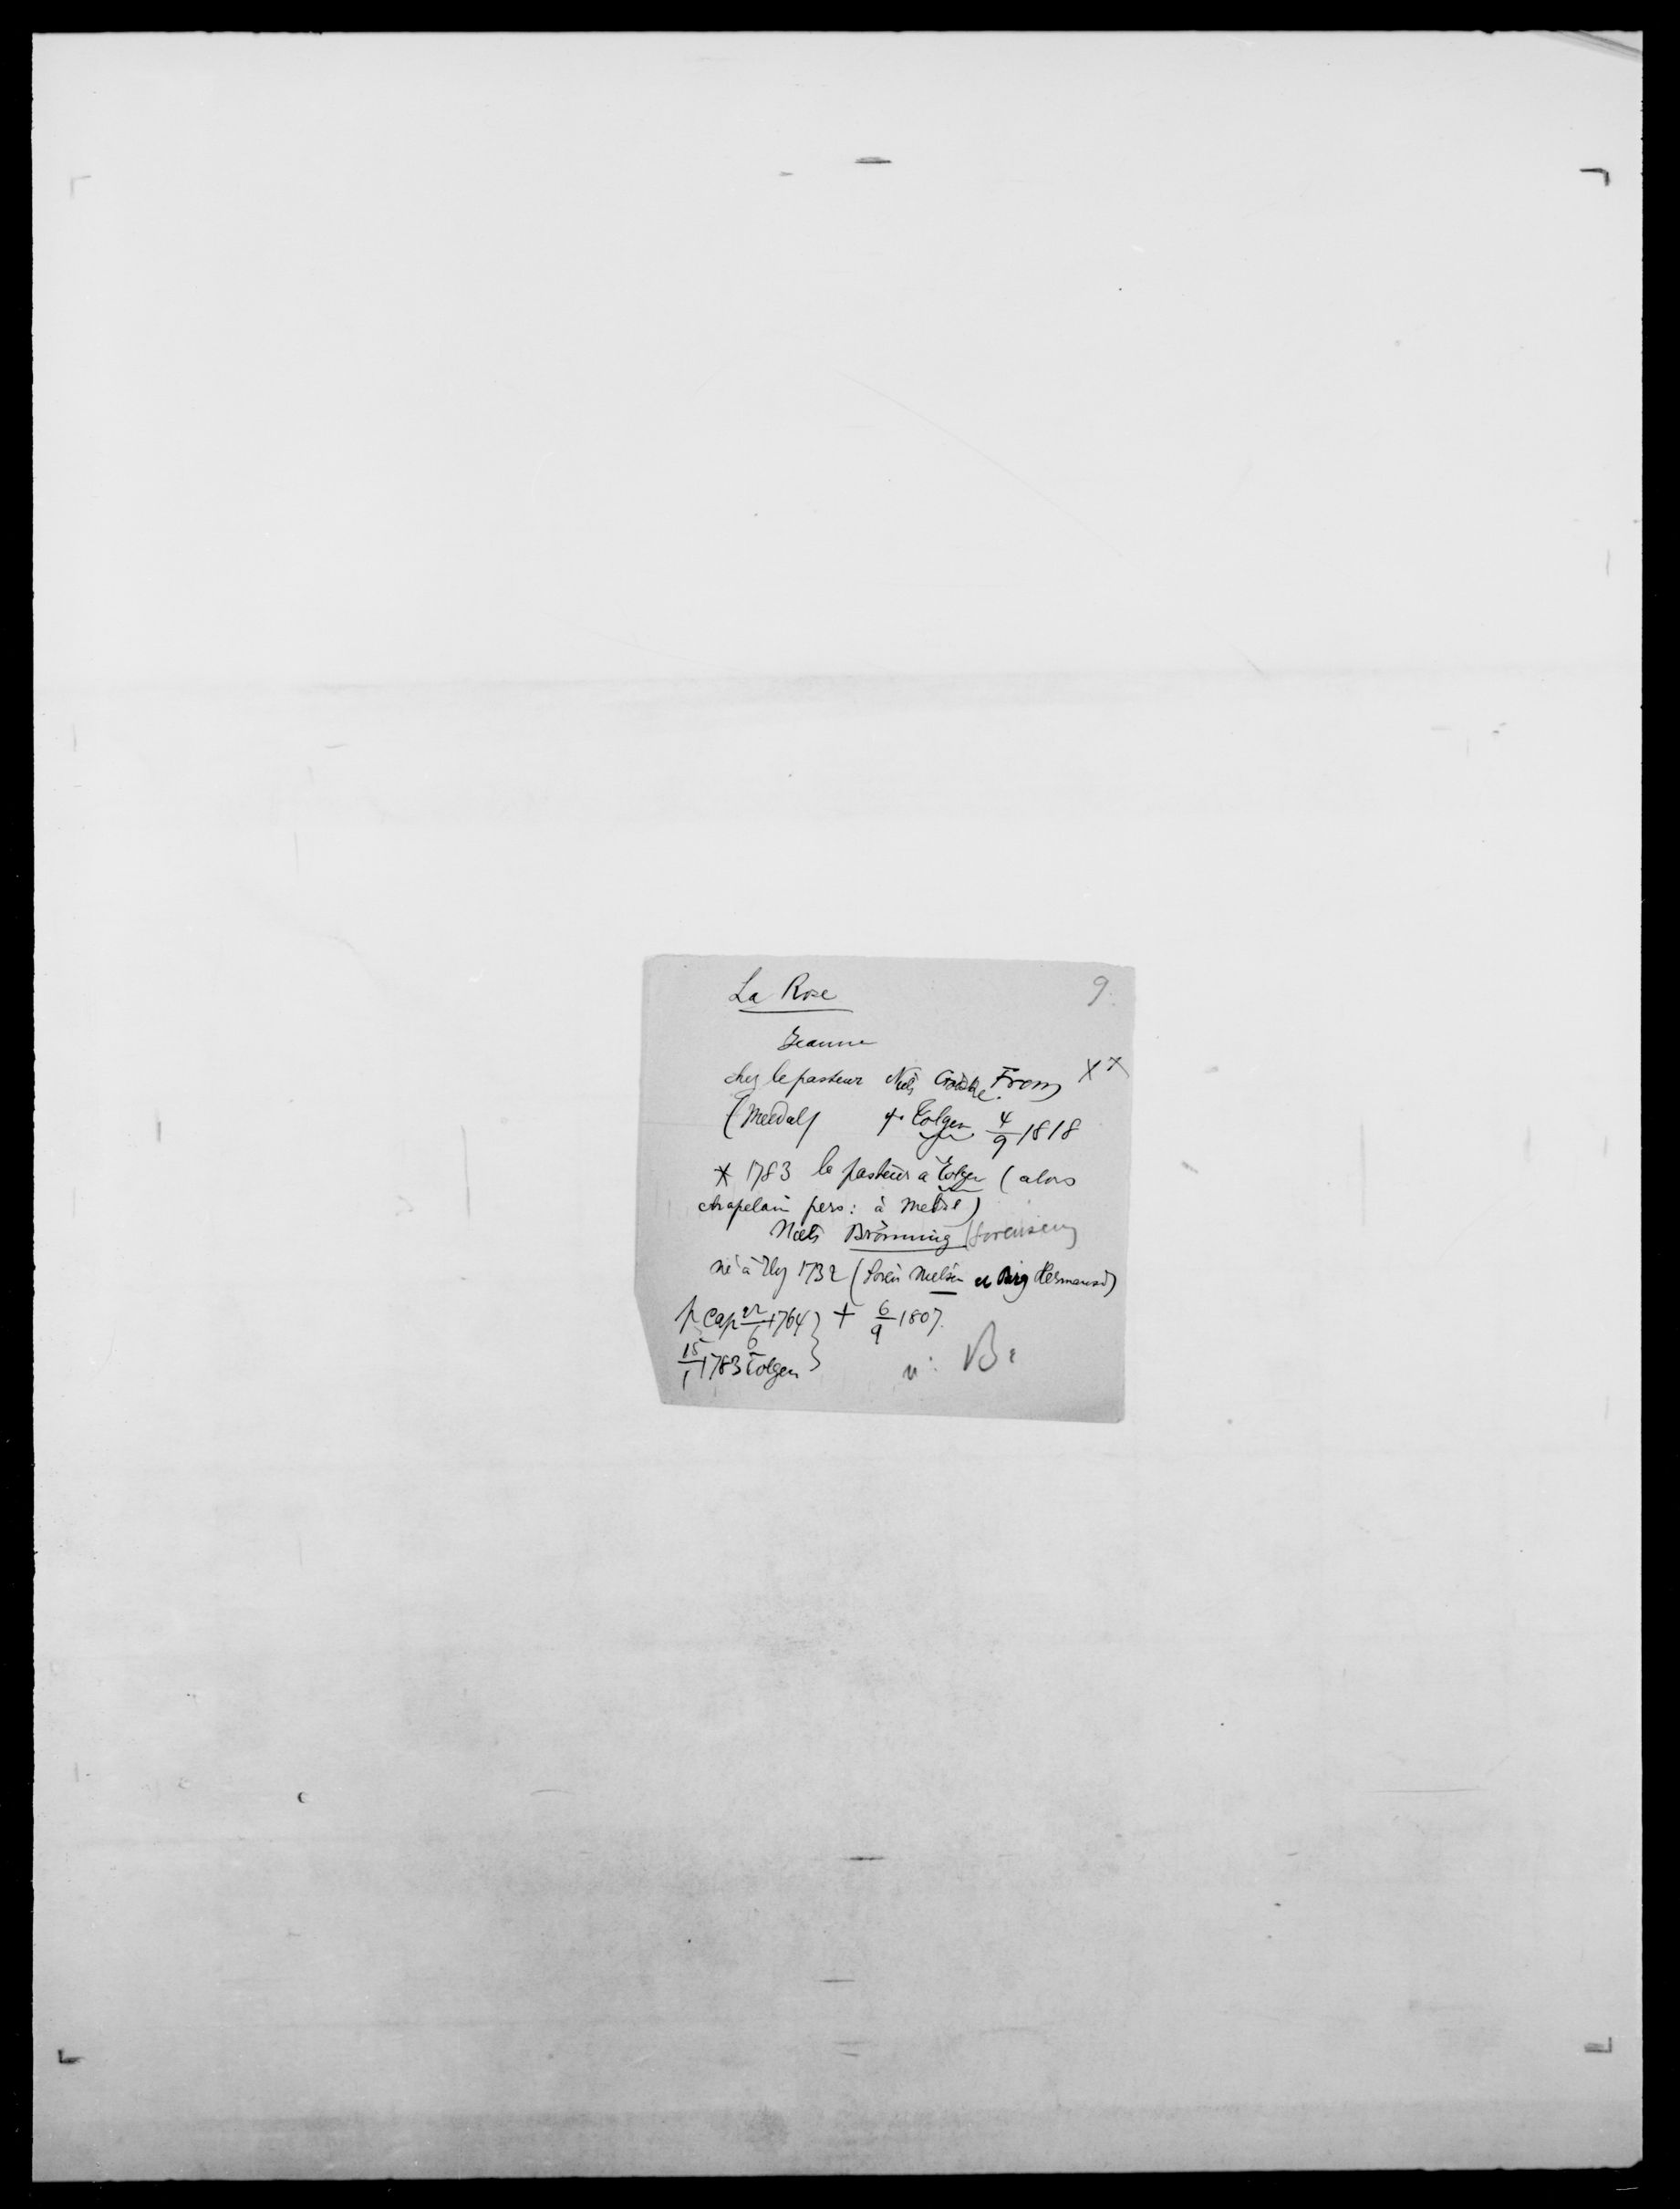 La Rose 9.
Jeanne
chez le pasteur Niels From ××
(Meldal) Tolgen 4/9 1818
* 1783 le pasteur à Tolgen (alors
chapelain pers: à Meldal)
Niels Brönning (Sorensen)
né à 1732 (Sören Nielsen et Hermansd)
p Cap 22/6 1764 } + 6/9 1807.
15/1 1783 Tolgen }
n: B: